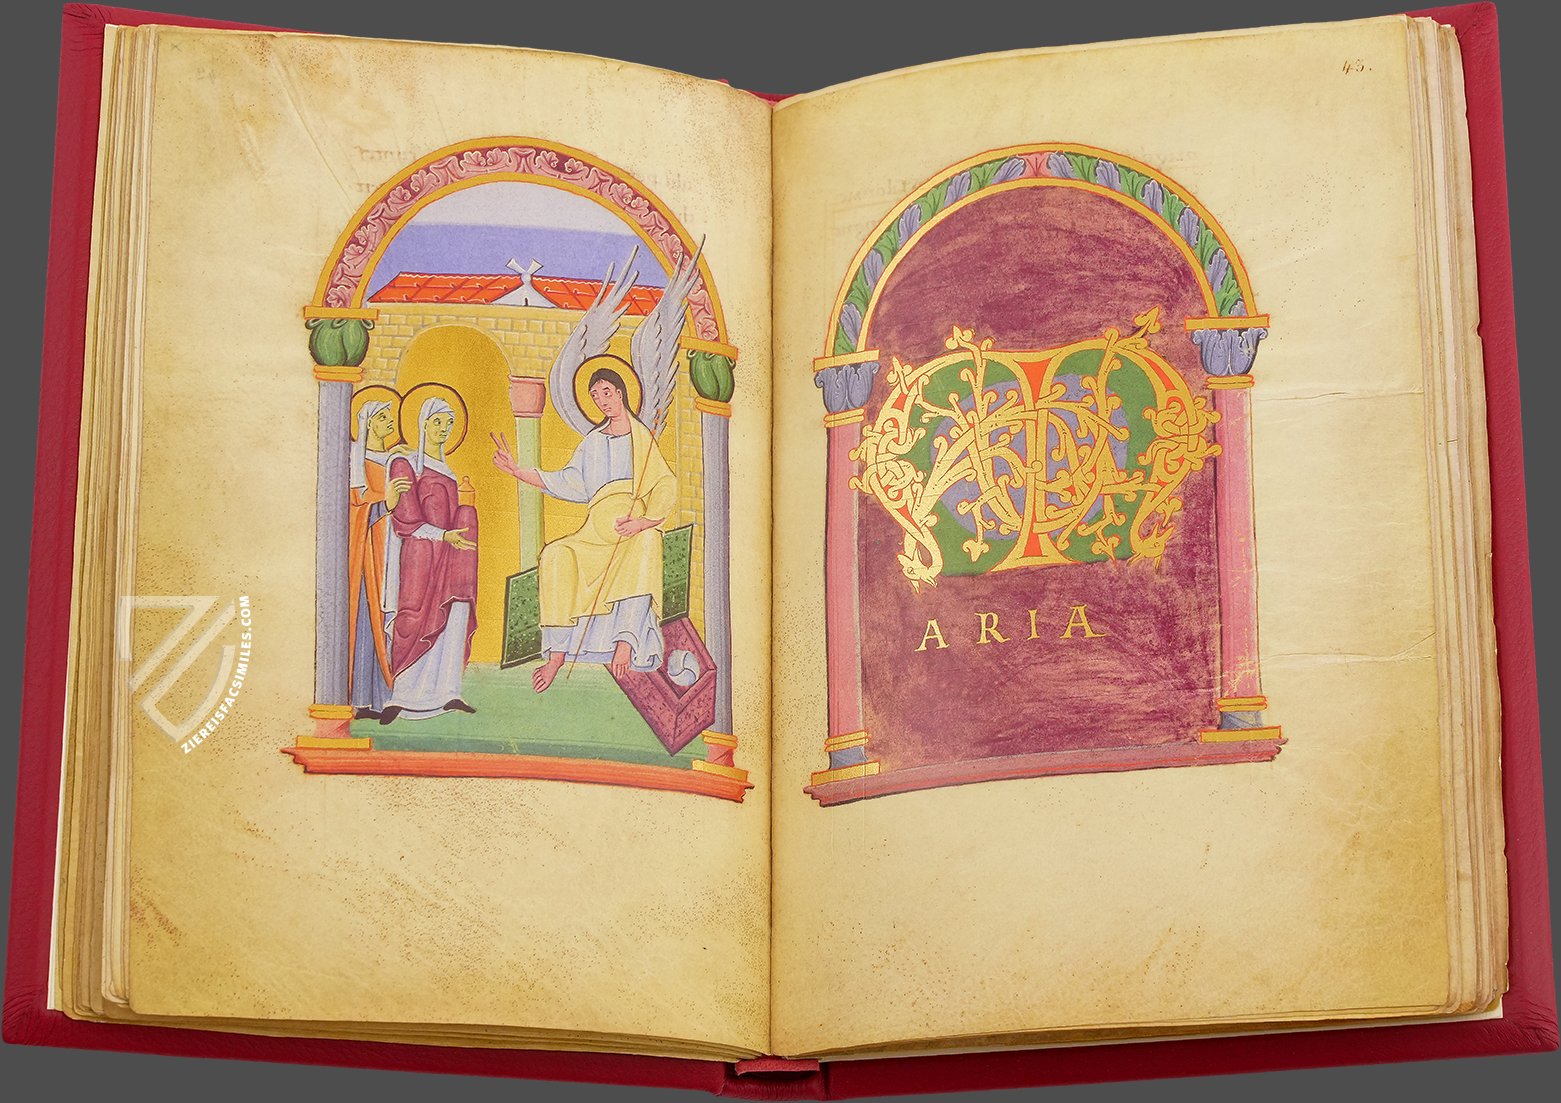 43.
M
ARIA
ZIEREISFACSIMILES.COM